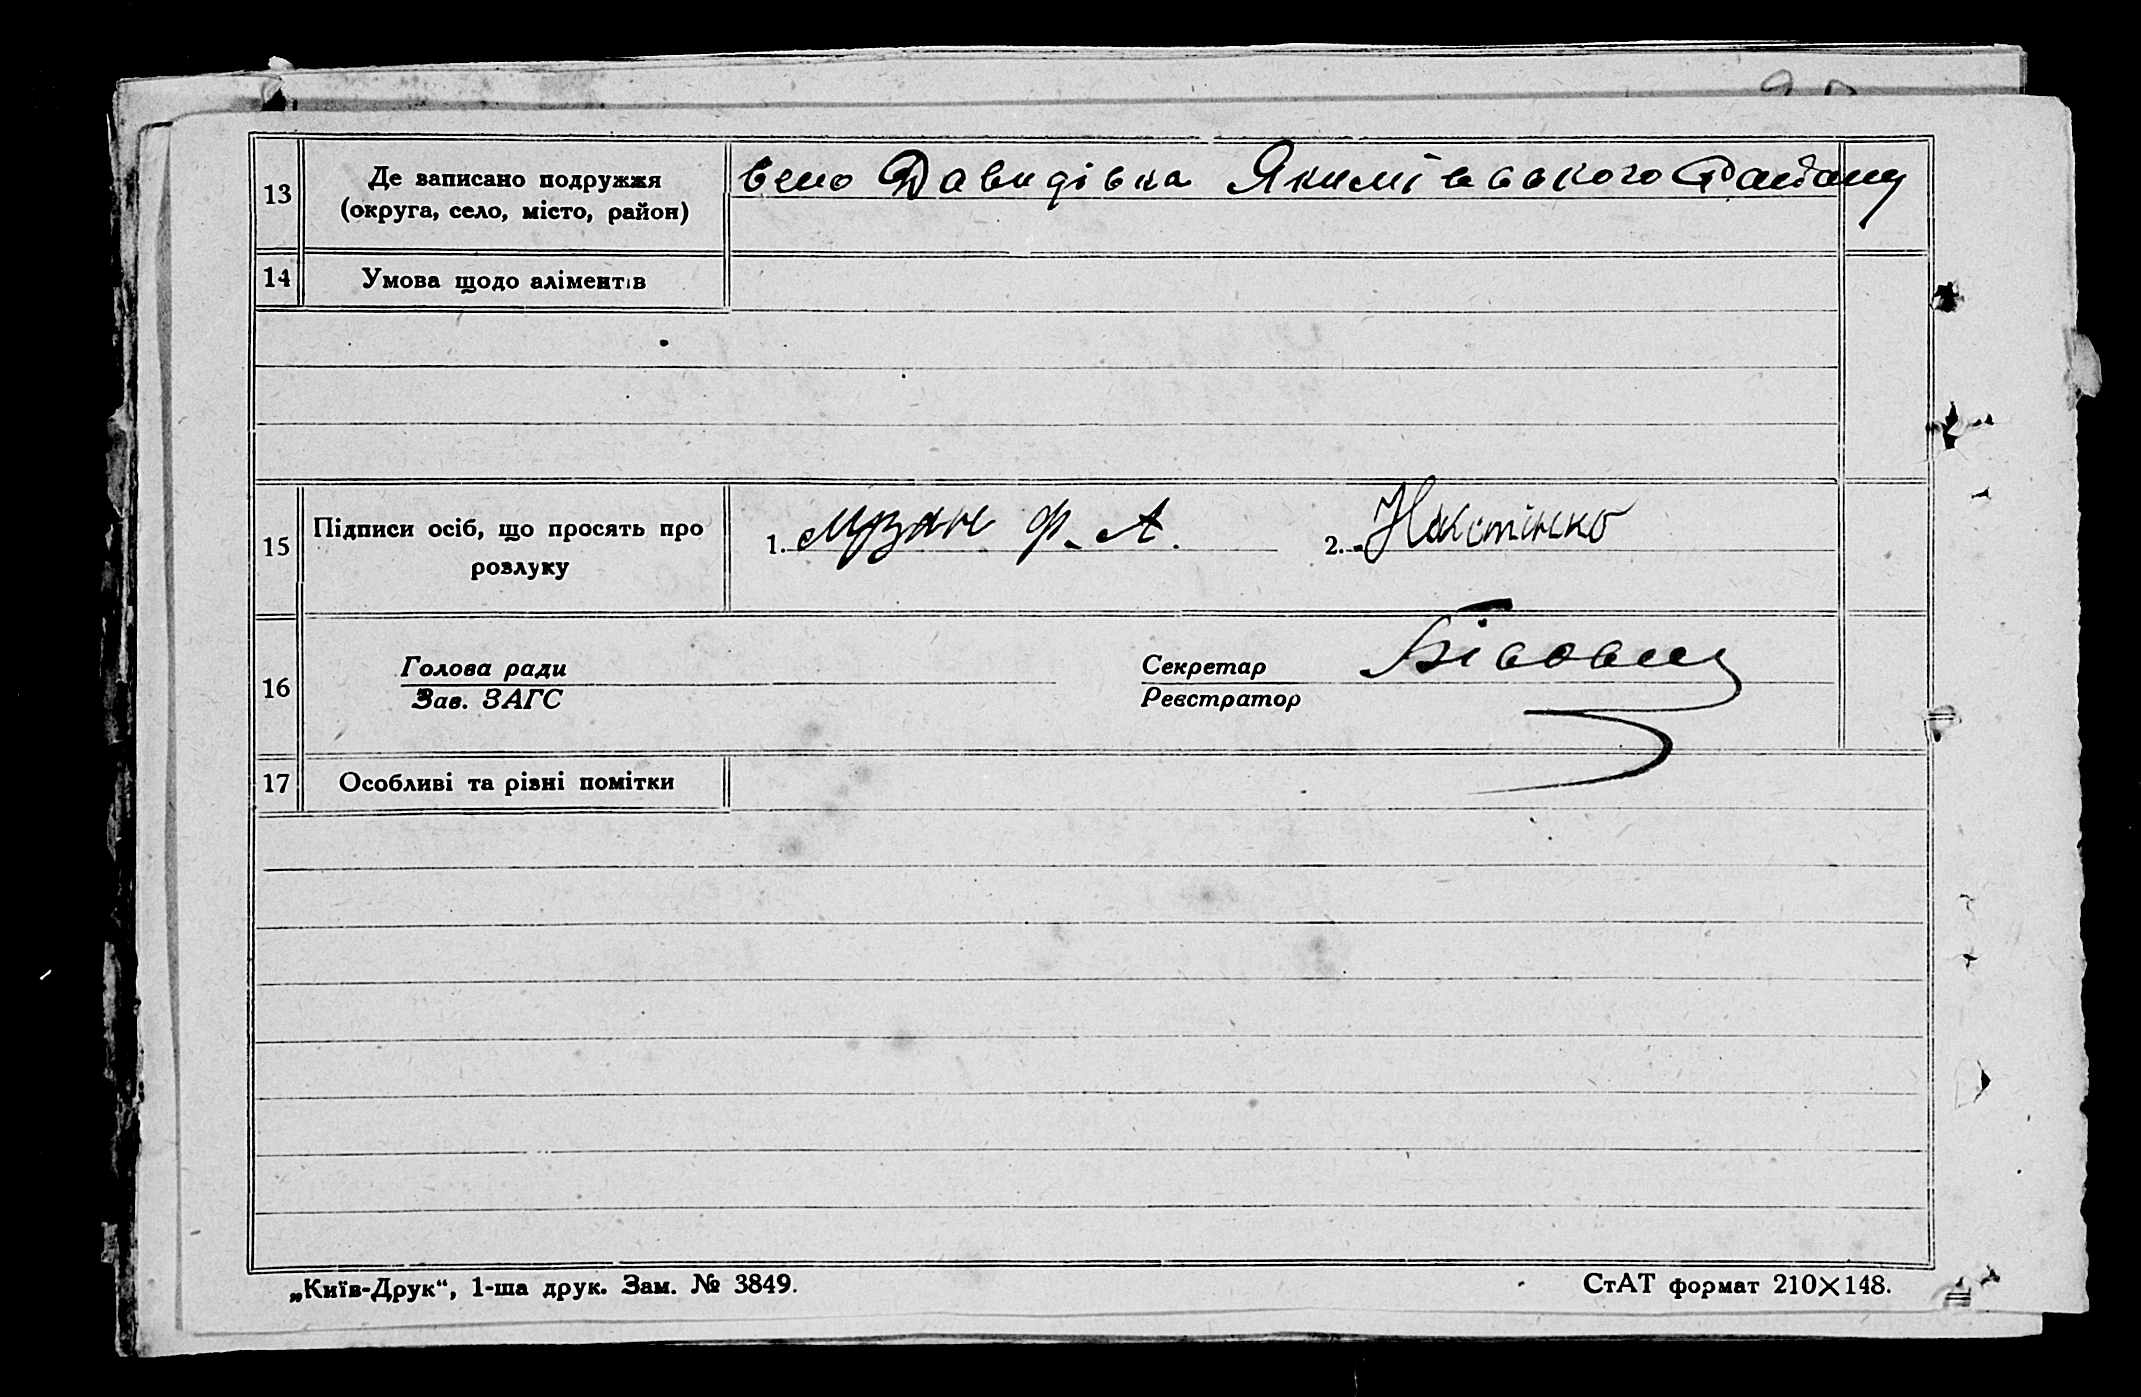 13 Де записано подружжя
(округа, село, місто, район)
село Давидівка Якимівського Району
14 Умова щодо аліментів
15 Підписи осіб, що просять про
розлуку
1. Музан Ф. А. 2.
16 Голова ради
Зав. ЗАГС
Секретар
Реєстратор
17 Особливі та різні помітки
„Київ-Друк“, 1-ша друк. Зам. № 3849.
СтАТ формат 210×148.